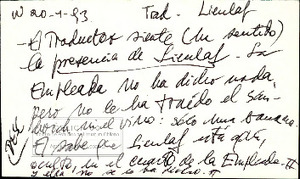 N 20-1-83 Trad. Lienlaf
- El Traductor siente (un sentido)
la presencia de Lienlaf - La
Empleada no ha dicho nada
pero no le ha traído el sán-
dwich ni el vino: sólo una banana.
El sabe que Lienlaf está aquí,
oculto, en el cuarto de la Empleada -
y ella no se lo ha dicho.